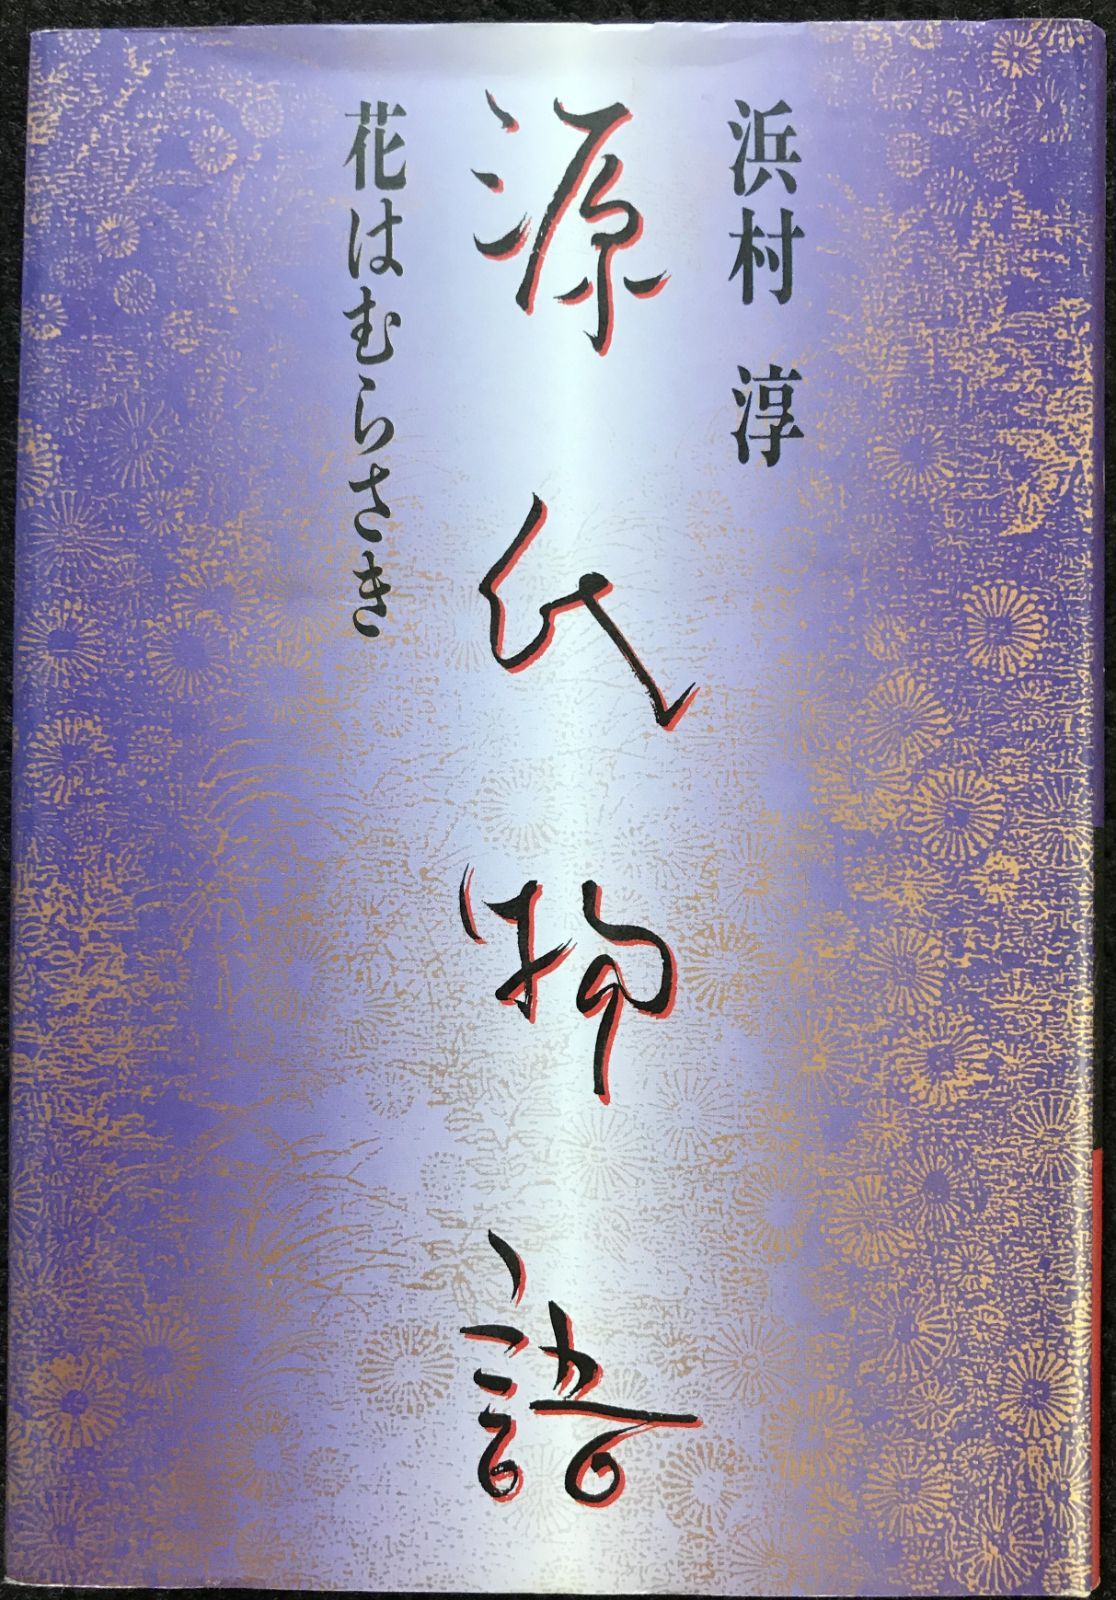 浜村 淳
源氏物語
花はむらさき